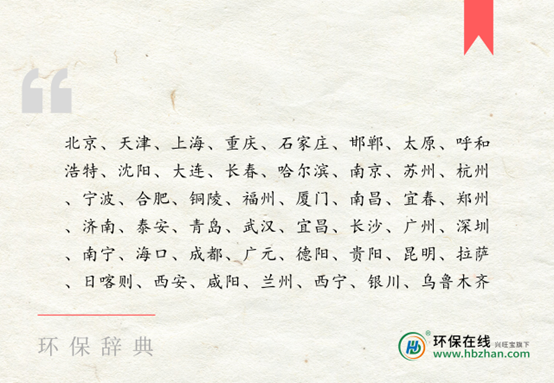 北京、天津、上海、重庆、石家庄、邯郸、太原、呼和
浩特、沈阳、大连、长春、哈尔滨、南京、苏州、杭州
、宁波、合肥、铜陵、福州、厦门、南昌、宜春、郑州
、济南、泰安、青岛、武汉、宜昌、长沙、广州、深圳
、南宁、海口、成都、广元、德阳、贵阳、昆明、拉萨
、日喀则、西安、咸阳、兰州、西宁、银川、乌鲁木齐
环保辞典
环保在线 兴旺宝旗下
www.hbzhan.com